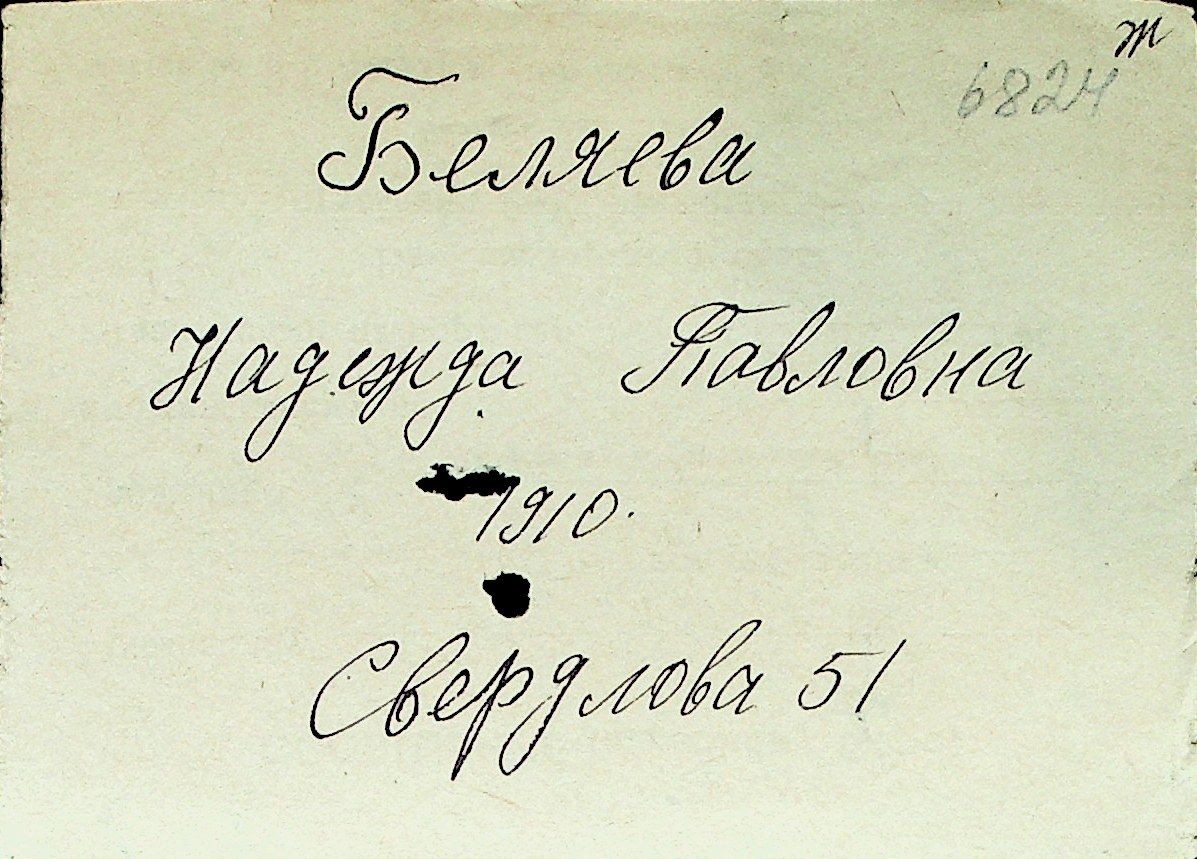 ж
6824
Беляева
Надежда Павловна
1910.
Свердлова 51